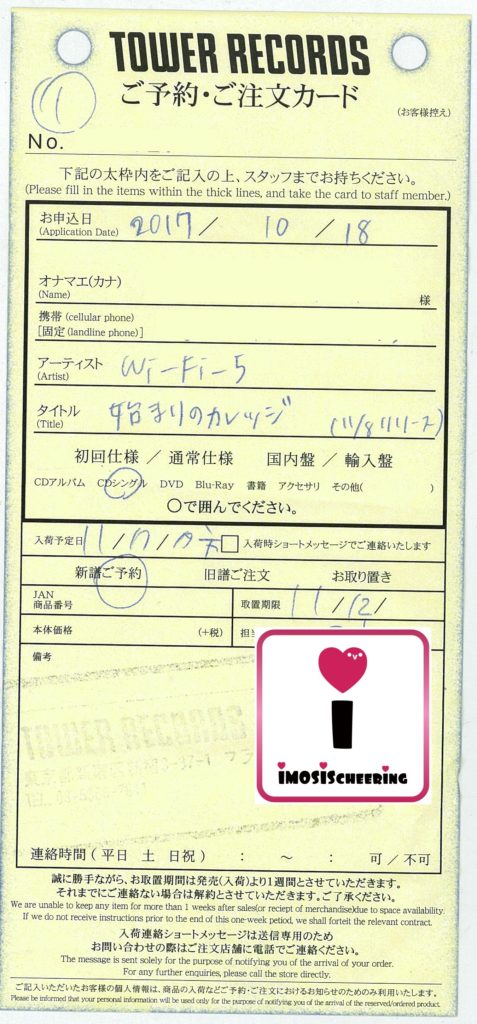 TOWER RECORDS
①
ご予約・ご注文カード
(お客様控え)
No.
下記の太枠内をご記入の上、スタッフまでお持ちください。
(Please fill in the items within the thick lines, and take the card to staff member.)
お申込日
(Application Date) 2017 / 10 / 18
オナマエ(カナ)
(Name) 様
携帯 (cellular phone)
[固定 (landline phone)]
アーティスト
(Artist) Wi-Fi-5
タイトル
(Title) 始まりのカレッジ (11/8リリース)
初回仕様 / 通常仕様 国内盤 / 輸入盤
CDアルバム CDシングル DVD Blu-Ray 書籍 アクセサリ その他( )
○で囲んでください。
入荷予定日 11/7/ 入荷時ショートメッセージでご連絡いたします
新譜ご予約 旧譜ご注文 お取り置き
JAN
商品番号 取置期限 11/12/
本体価格 (+税) 担当
備考
TOWER RECORDS
i
iMOSiSCHEERiNG
連絡時間 ( 平日 土 日祝 ) : ~ : 可 / 不可
誠に勝手ながら、お取置期間は発売(入荷)より1週間とさせていただきます。
それまでにご連絡ない場合は解約とさせていただきます。ご了承ください。
We are unable to keep any item for more than 1 weeks after sales(or reciept of merchandise)due to space availability.
If we do not receive instructions prior to the end of this one-week petiod, we shall forteit the relevant contract.
入荷連絡ショートメッセージは送信専用のため
お問い合わせの際はご注文店舗に電話でご連絡ください。
The message is sent solely for the purpose of notifying you of the arrival of your order.
For any further enquiries, please call the store directly.
ご記入いただいたお客様の個人情報は、商品の入荷などご予約・ご注文におけるお知らせのためのみ利用いたします。
Please be informed that your personal information will be used only for the purpose of notifying you of the arrival of the reserved/ordered product.